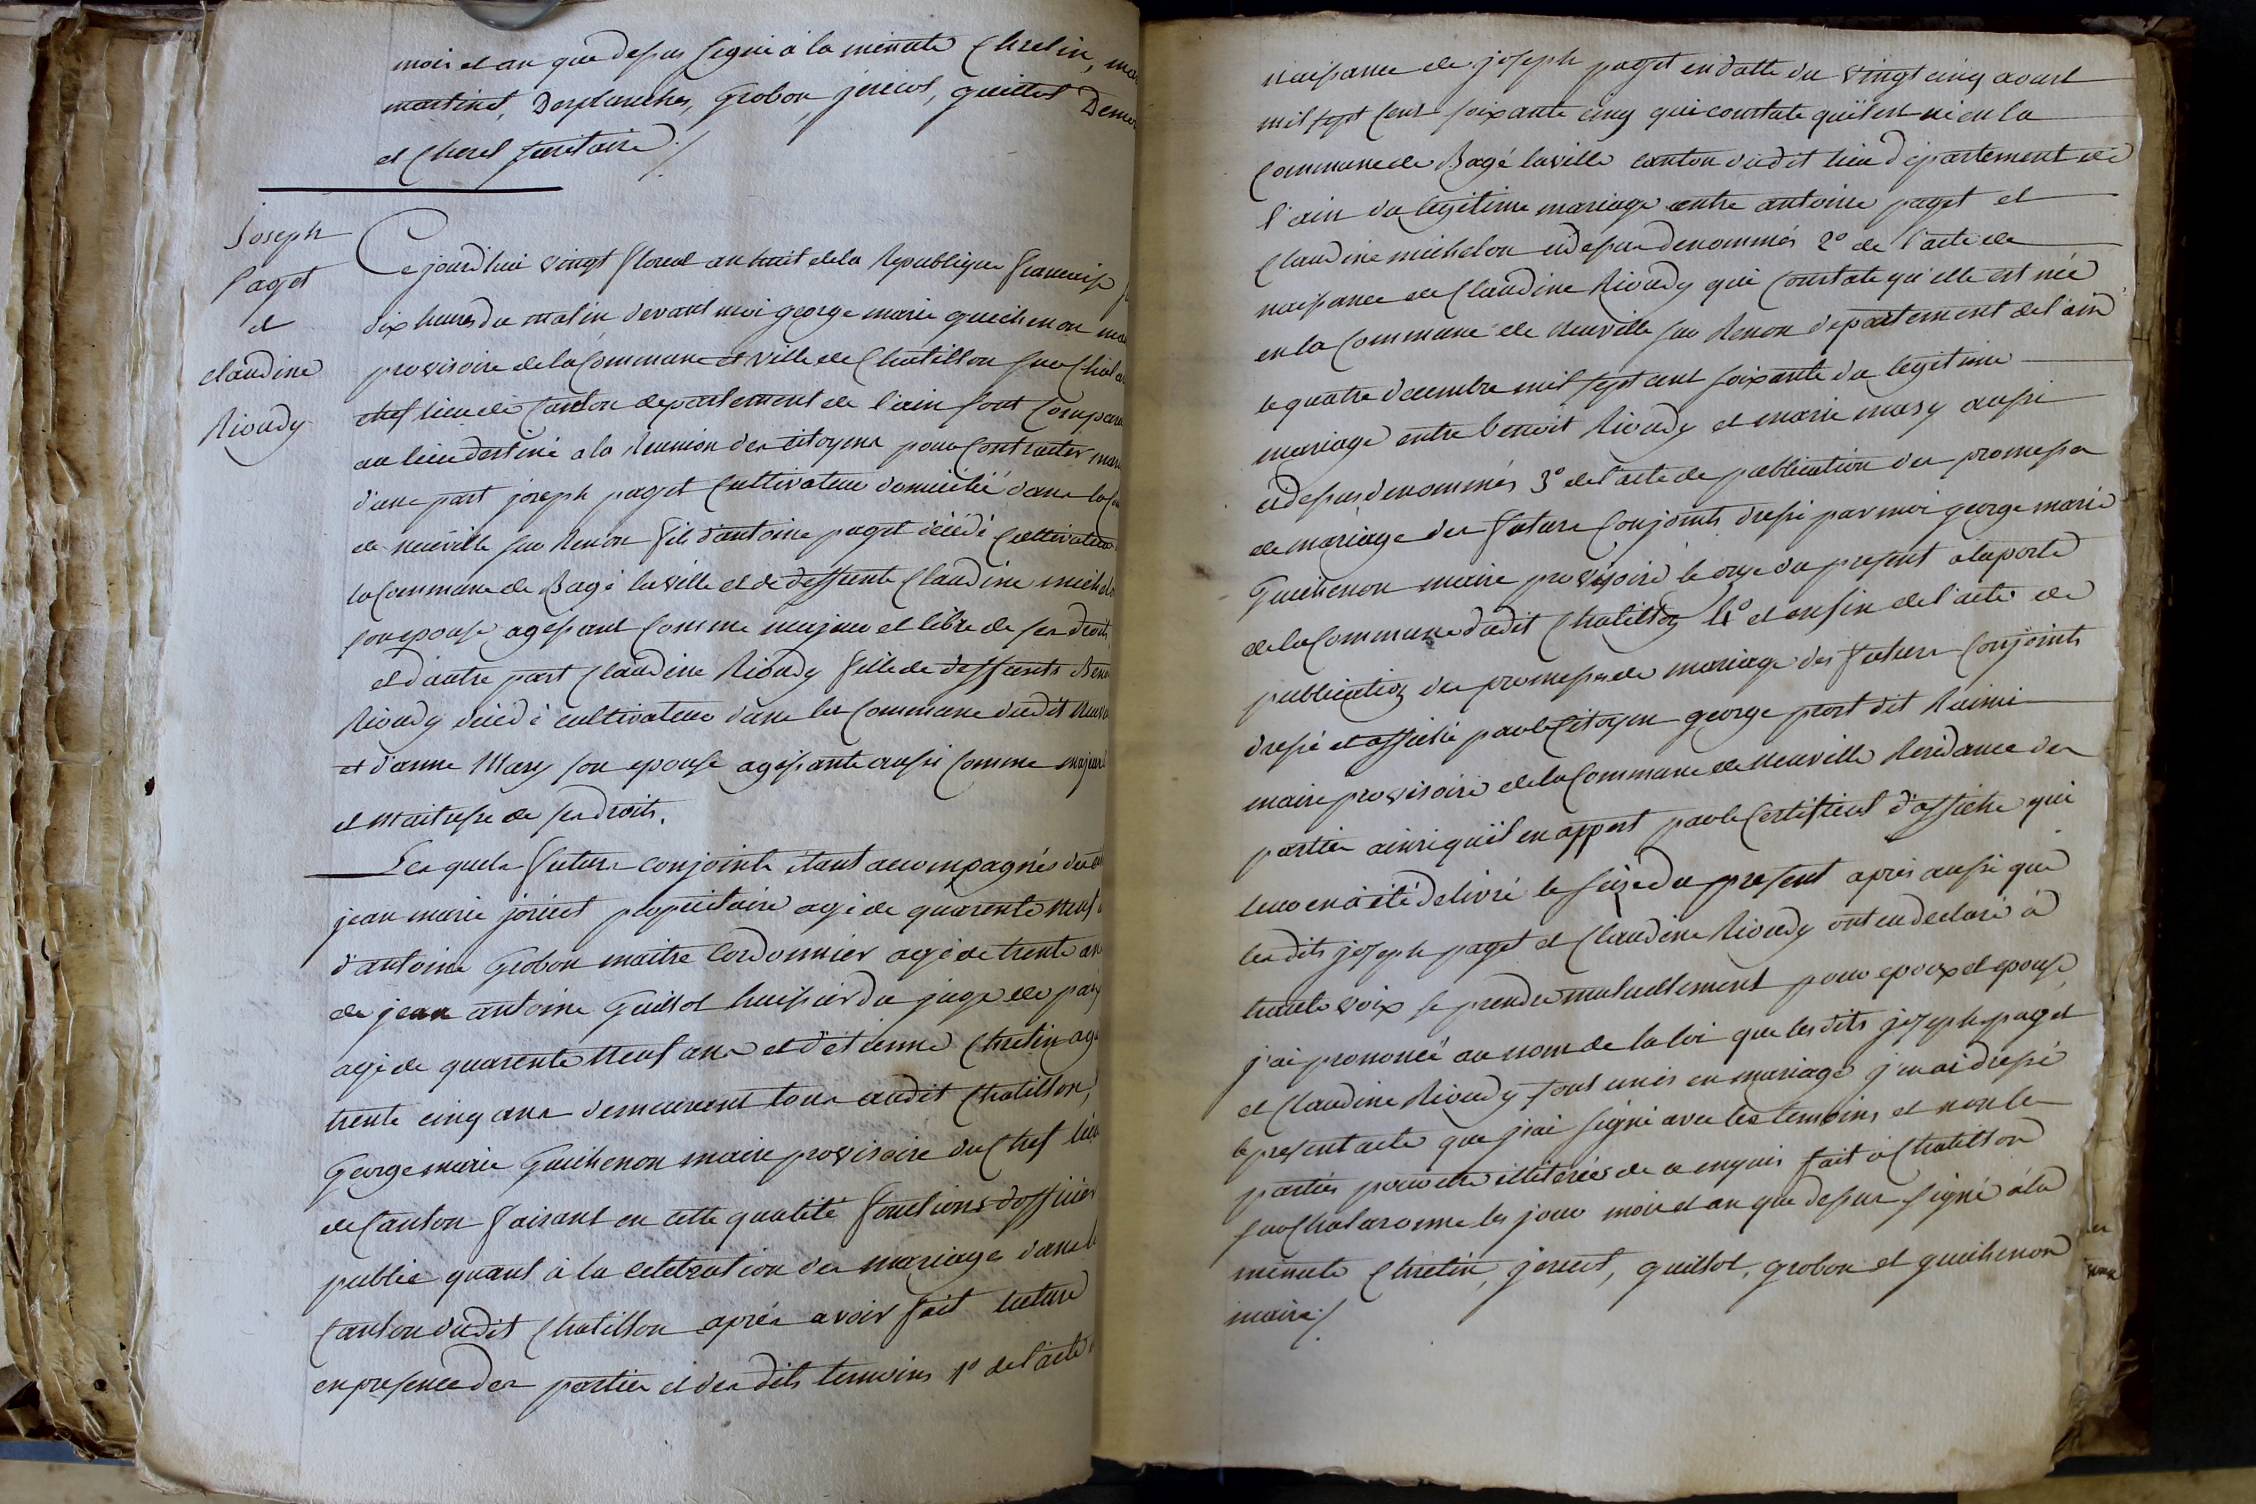 mois et an que dessus signé à la minute Chretin,
martinet, Desplanches, Grobon, joricot, guillot
et Cherel secretaire ./.
Joseph
Paget
et
claudine
Rioudy
Ce jourdhui vingt floreal an huit de la Republique francaise
dix heures du matin devant moi george marie guichenon
provisoire de la Commune et ville de Chatillon sur
chef lieu de Canton departement de l'ain sont
au lieu destiné a la Reunion des citoyens pour Contracter
d'une part joseph paget Cultivateur domicilié dans
de neuville sur Renon fils d'antoine paget décédé Cultivateur
la Commune de Bagé la ville et de deffunte Claudine
son epouse agissant Comme majeur et libre de ses droits
et d'autre part Claudine Rioudy fille de deffunts
Rioudy décédé cultivateur dans la Commune dudit
et d'anne Mary son epouse agissante aussi Comme
et maitresse de ses droits.
Les quels futurs conjoints étant accompagnés
jean marie joricot propriétaire agé de quarente neuf
d'antoine Grobon maitre Cordonnier agé de trente
de jean antoine Guillot huissier du juge de paix
agé de quarente neuf ans et d'étienne Chretin
trente cinq ans demeurant tous audit Chatillon,
George marie Guichenon maire provisoire du Chef lieu
de Canton faisant en cette qualité fonctions d'officier
public quant à la celebration des mariages dans le
Canton dudit Chatillon après avoir fait lecture
en presence des parties et des dits temoins 1º de l'acte
naissance de joseph paget en datte du vingt cinq aoust
mil sept Cent soixante cinq qui constate qu'il est né en la
Commune de Bagé la ville canton dudit lieu departement de
l'ain du legitime mariage entre antoine paget et
Claudine michelon cidessus denommés 2º de l'acte de
naissance de Claudine Rioudy qui Constate qu'elle est née
en la Commune de neuville sur Renon departement de l'ain
le quatre decembre mil sept cent soixante du legitime
mariage entre benoit Rioudy et marie mary aussi
cidessus denommés 3º de l'acte de publication des promesses
de mariage des futurs Conjoints dressé par moi george marie
Guichenon maire provisoire le onze du present a la porte
de la Commune dudit Chatillon 4º et enfin de l'acte de
publication des promesses de mariage des futurs Conjoints
dressé et affiché par le Citoyen george prost dit
maire provisoire de la Commune de neuville Residance des
parties ainsi qu'il en appert par le Certificat d'affiche qui
leur en a été delivré le seize du present après aussi que
les dits joseph paget et Claudine Rioudy ont eu declaré à
haute voix se prendre mutuellement pour epoux et epouse,
j'ai prononcé au nom de la loi que les dits joseph paget
et Claudine Rioudy sont unis en mariage j'en ai dressé
le present acte que j'ai signé avec les temoins et non les
parties pour etre illitérées de ce enquis fait à Chatillon
sur Chalaronne les jour mois et an que dessus signé à la
minute Chretin, joricot, guillot, grobon et guichenon
maire ./.